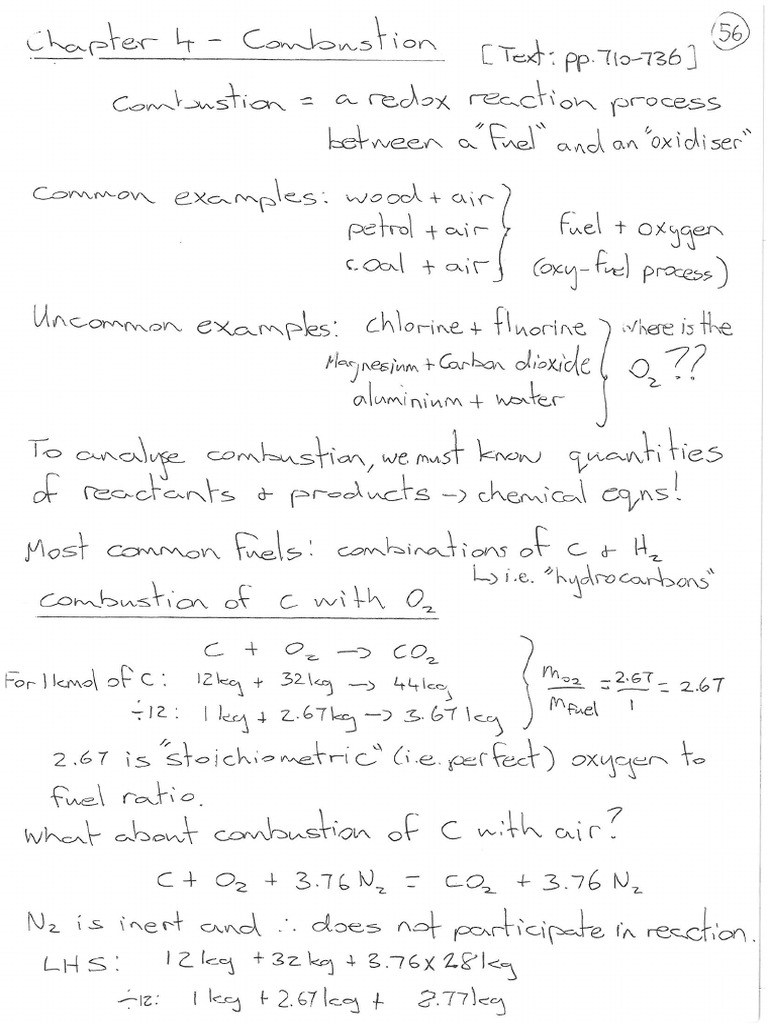 Chapter 4 - Combustion [Text: pp. 710-736] 56
Combustion = a redox reaction process
between a "fuel" and an "oxidiser"
Common examples: wood + air
petrol + air } fuel + oxygen
coal + air (oxy-fuel process)
Uncommon examples: chlorine + fluorine } where is the
Magnesium + Carbon dioxide O₂??
aluminium + water
To analyse combustion, we must know quantities
of reactants & products → chemical eqns!
Most common fuels: combinations of C & H₂
↳ i.e. "hydrocarbons"
Combustion of C with O₂
C + O₂ → CO₂
For 1 kmol of C: 12kg + 32kg → 44kg } mO₂/mfuel = 2.67/1 = 2.67
÷12: 1kg + 2.67kg → 3.67kg
2.67 is "stoichiometric" (i.e. perfect) oxygen to
fuel ratio.
What about combustion of C with air?
C + O₂ + 3.76 N₂ = CO₂ + 3.76 N₂
N₂ is inert and ∴ does not participate in reaction.
LHS: 12kg + 32kg + 3.76 × 28kg
÷12: 1kg + 2.67kg + 8.77kg